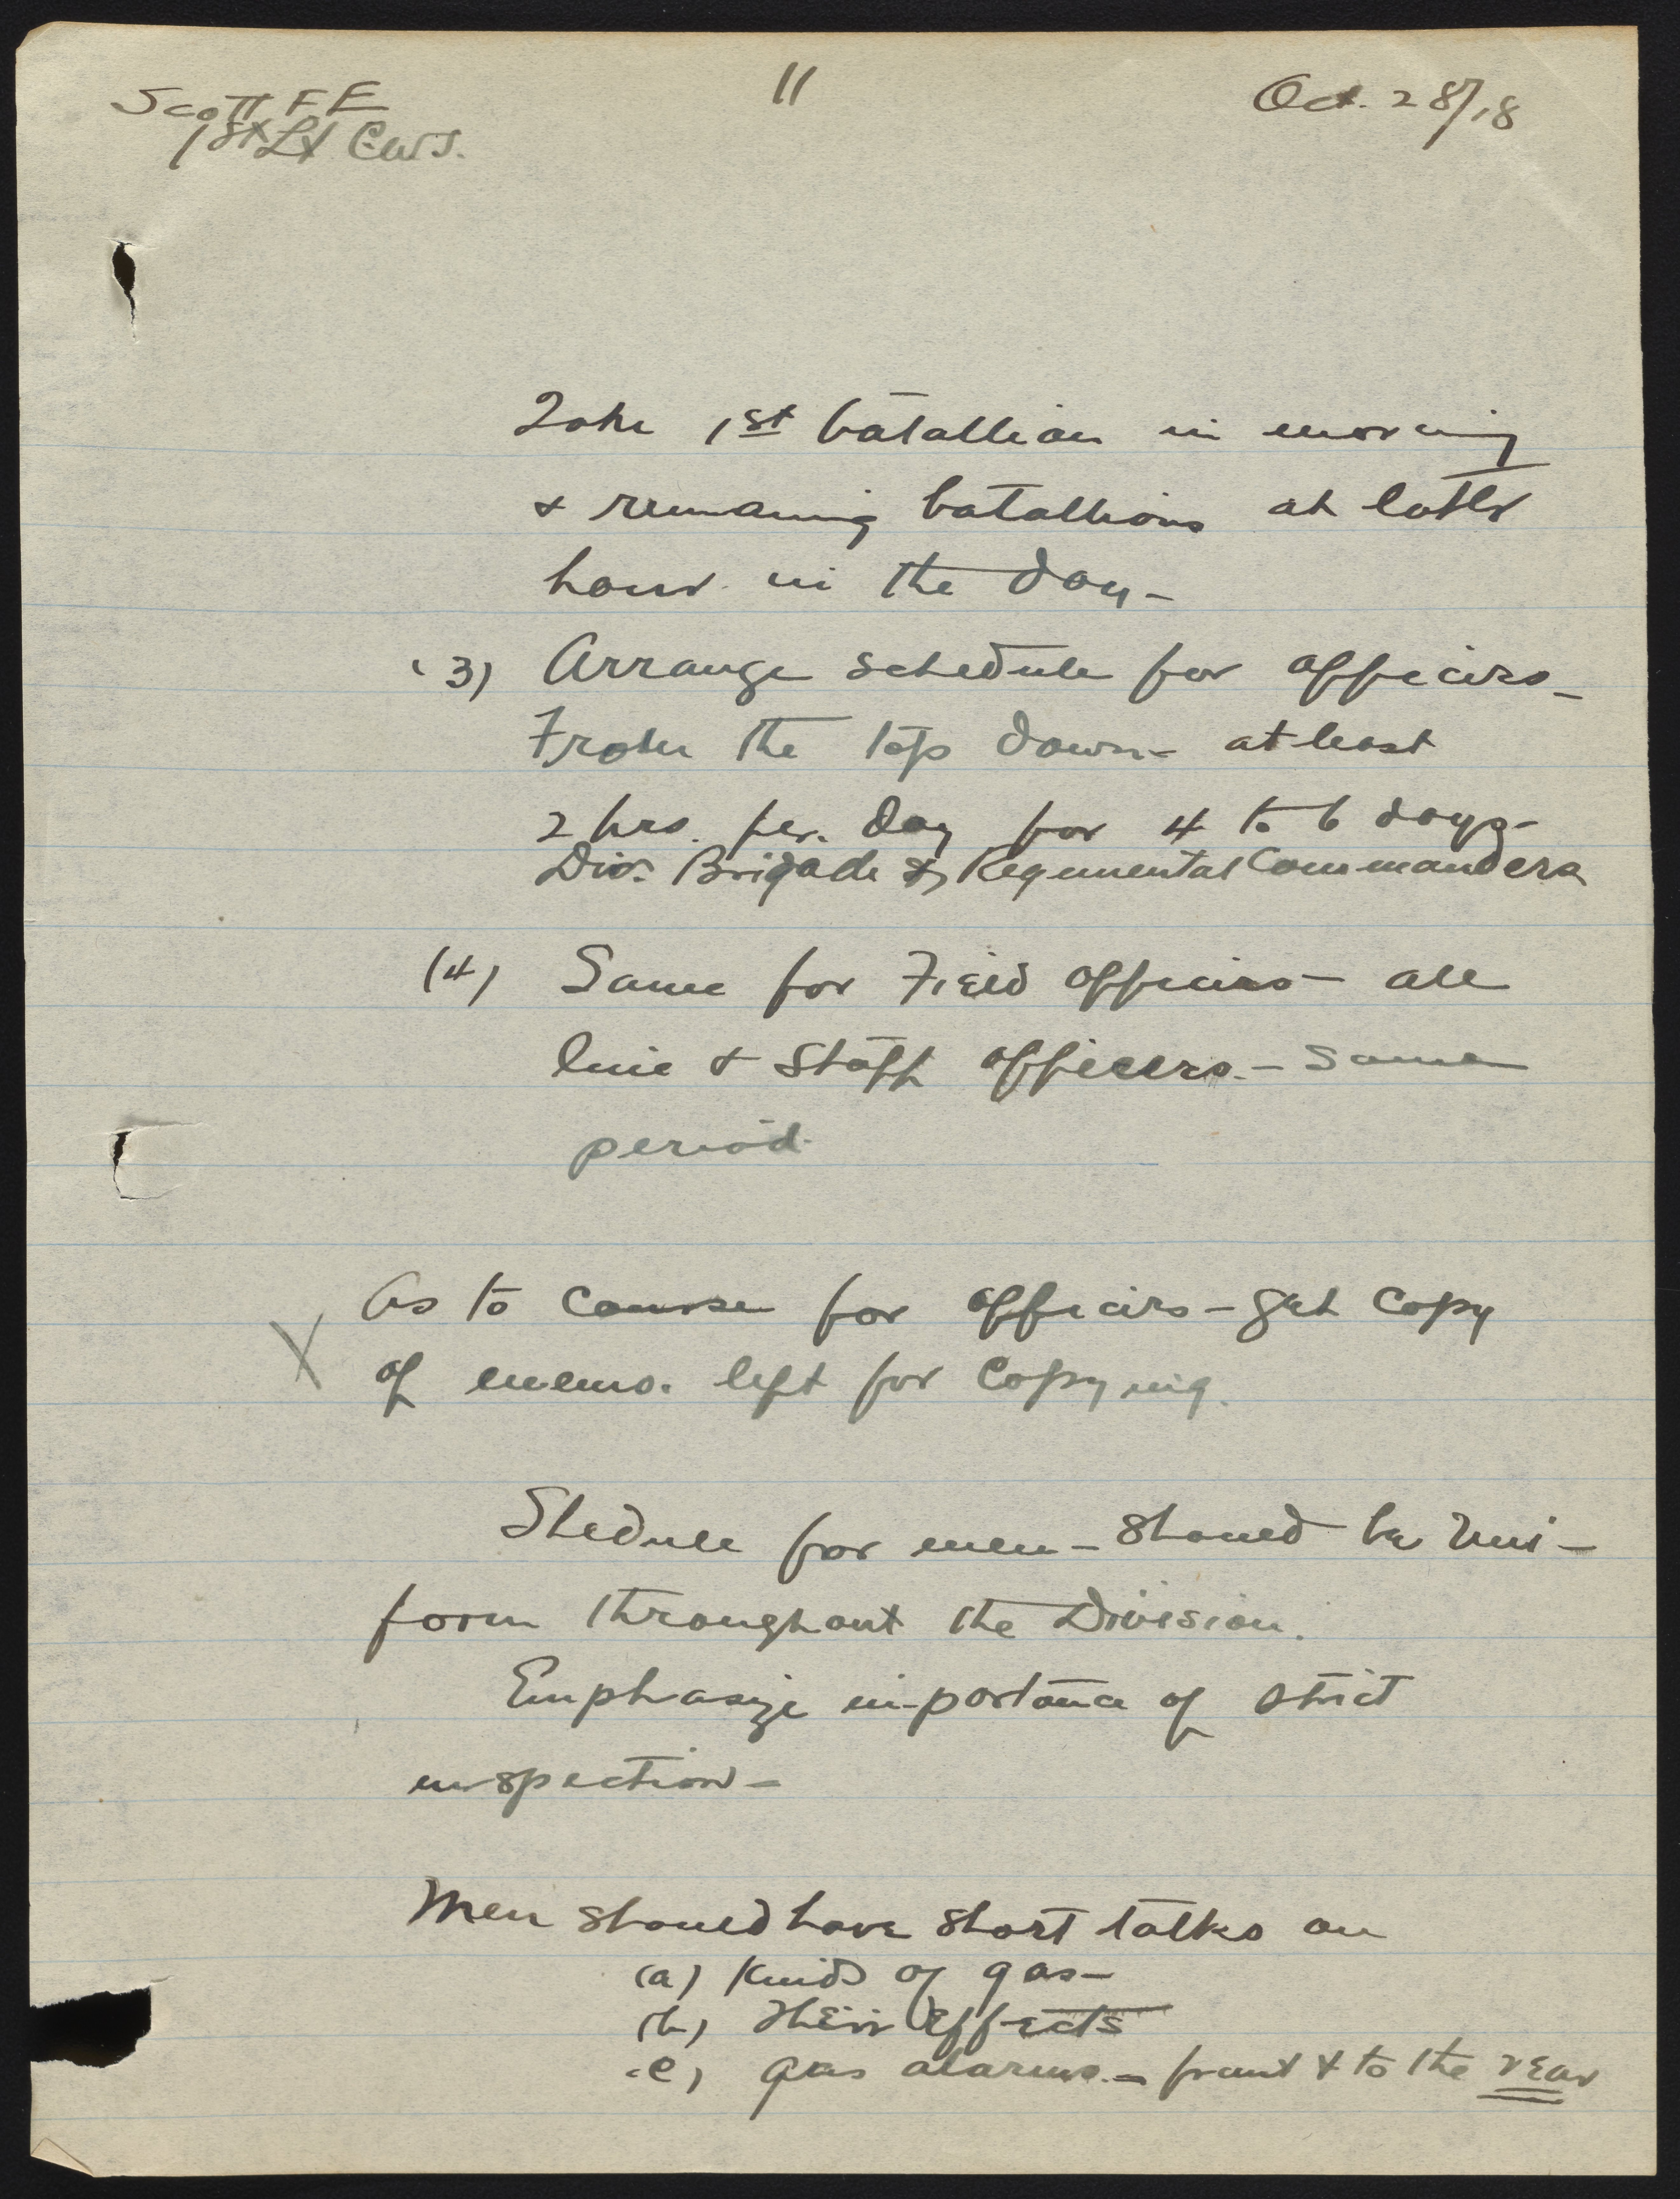 Scott FE
11
Oct. 28/18
1st Lt C.W.S.
Take 1st batallion in morning
& remaining batallions at later
hour in the day -
(3) Arrange schedule for officers -
From the top down - at least
2 hrs. per. day for 4 to 6 days -
Div. Brigade & Regimental Commanders
(4) Same for Field officers - all
line & Staff officers. - same
period.
As to course for officers - get copy
X of memo. left for copying.
Shedule for men - should be uni-
form throughout the Division.
Emphasize importance of strict
inspection -
Men should have short talks on
(a) Kinds of gas -
(b) Their Effects
(c) gas alarms. - front & to the rear